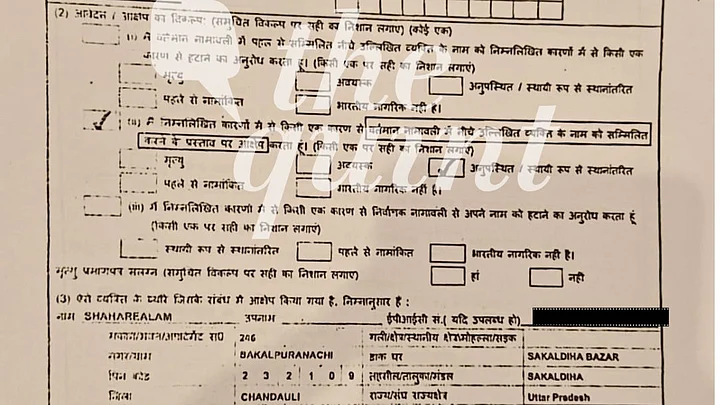 (2) आवेदन / आक्षेप का विकल्प: (समुचित विकल्प पर सही का निशान लगाएं) (कोई एक)
(i) मैं वर्तमान नामावली में पहले से सम्मिलित नीचे उल्लिखित व्यक्ति के नाम को निम्नलिखित कारणों में से किसी एक
कारण से हटाने का अनुरोध करता हूं। (किसी एक पर सही का निशान लगाएं)
मृत्यु अवयस्क अनुपस्थित / स्थायी रूप से स्थानांतरित
पहले से नामांकित भारतीय नागरिक नहीं है।
(ii) मैं निम्नलिखित कारणों में से किसी एक कारण से वर्तमान नामावली में नीचे उल्लिखित व्यक्ति के नाम को सम्मिलित
करने के प्रस्ताव पर आक्षेप करता हूं। (किसी एक पर सही का निशान लगाएं)
मृत्यु अवयस्क अनुपस्थित / स्थायी रूप से स्थानांतरित
पहले से नामांकित भारतीय नागरिक नहीं है।
(iii) मैं निम्नलिखित कारणों में से किसी एक कारण से निर्वाचक नामावली से अपने नाम को हटाने का अनुरोध करता हूं
(किसी एक पर सही का निशान लगाएं)
स्थायी रूप से स्थानांतरित पहले से नामांकित भारतीय नागरिक नहीं है।
मृत्यु प्रमाणपत्र संलग्न (समुचित विकल्प पर सही का निशान लगाएं) हां नहीं
(3) ऐसे व्यक्ति के ब्यौरे जिनके संबंध में आक्षेप किया गया है, निम्नानुसार हैं :
नाम SHAHAREALAM उपनाम ईपीआईसी सं.( यदि उपलब्ध हो)
मकान/भवन/अपार्टमेंट सं0 246 गली/क्षेत्र/स्थानीय क्षेत्र/मोहल्ला/सड़क
नगर/ग्राम BAKALPURANACHI डाक घर SAKALDIHA BAZAR
पिन कोड 2 3 2 1 0 9 तहसील/तालुका/मंडल SAKALDIHA
जिला CHANDAULI राज्य/संघ राज्यक्षेत्र Uttar Pradesh
the
quint